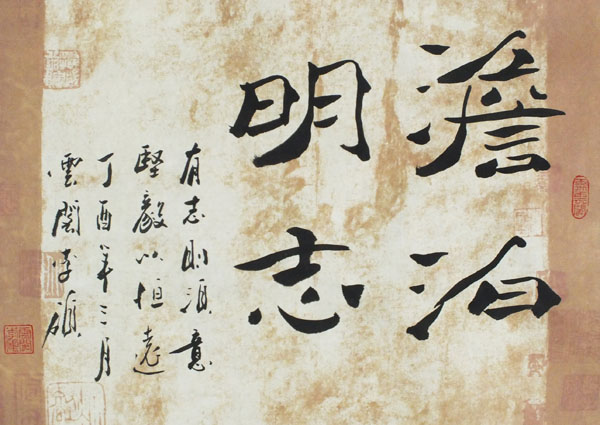 澹泊
明志
有志則須意
堅毅以恒遠
丁酉年三月
雲